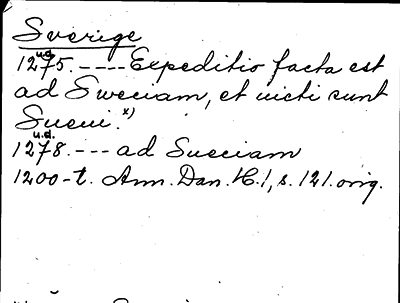 Sverige
u.å.
1275. ---- Expeditio facta est
ad Sweciam, et victi sunt
Sueui. x)
u.å.
1278. --- ad Sueciam
1200-t. Ann. Dan. VC. 1, s. 121. orig.